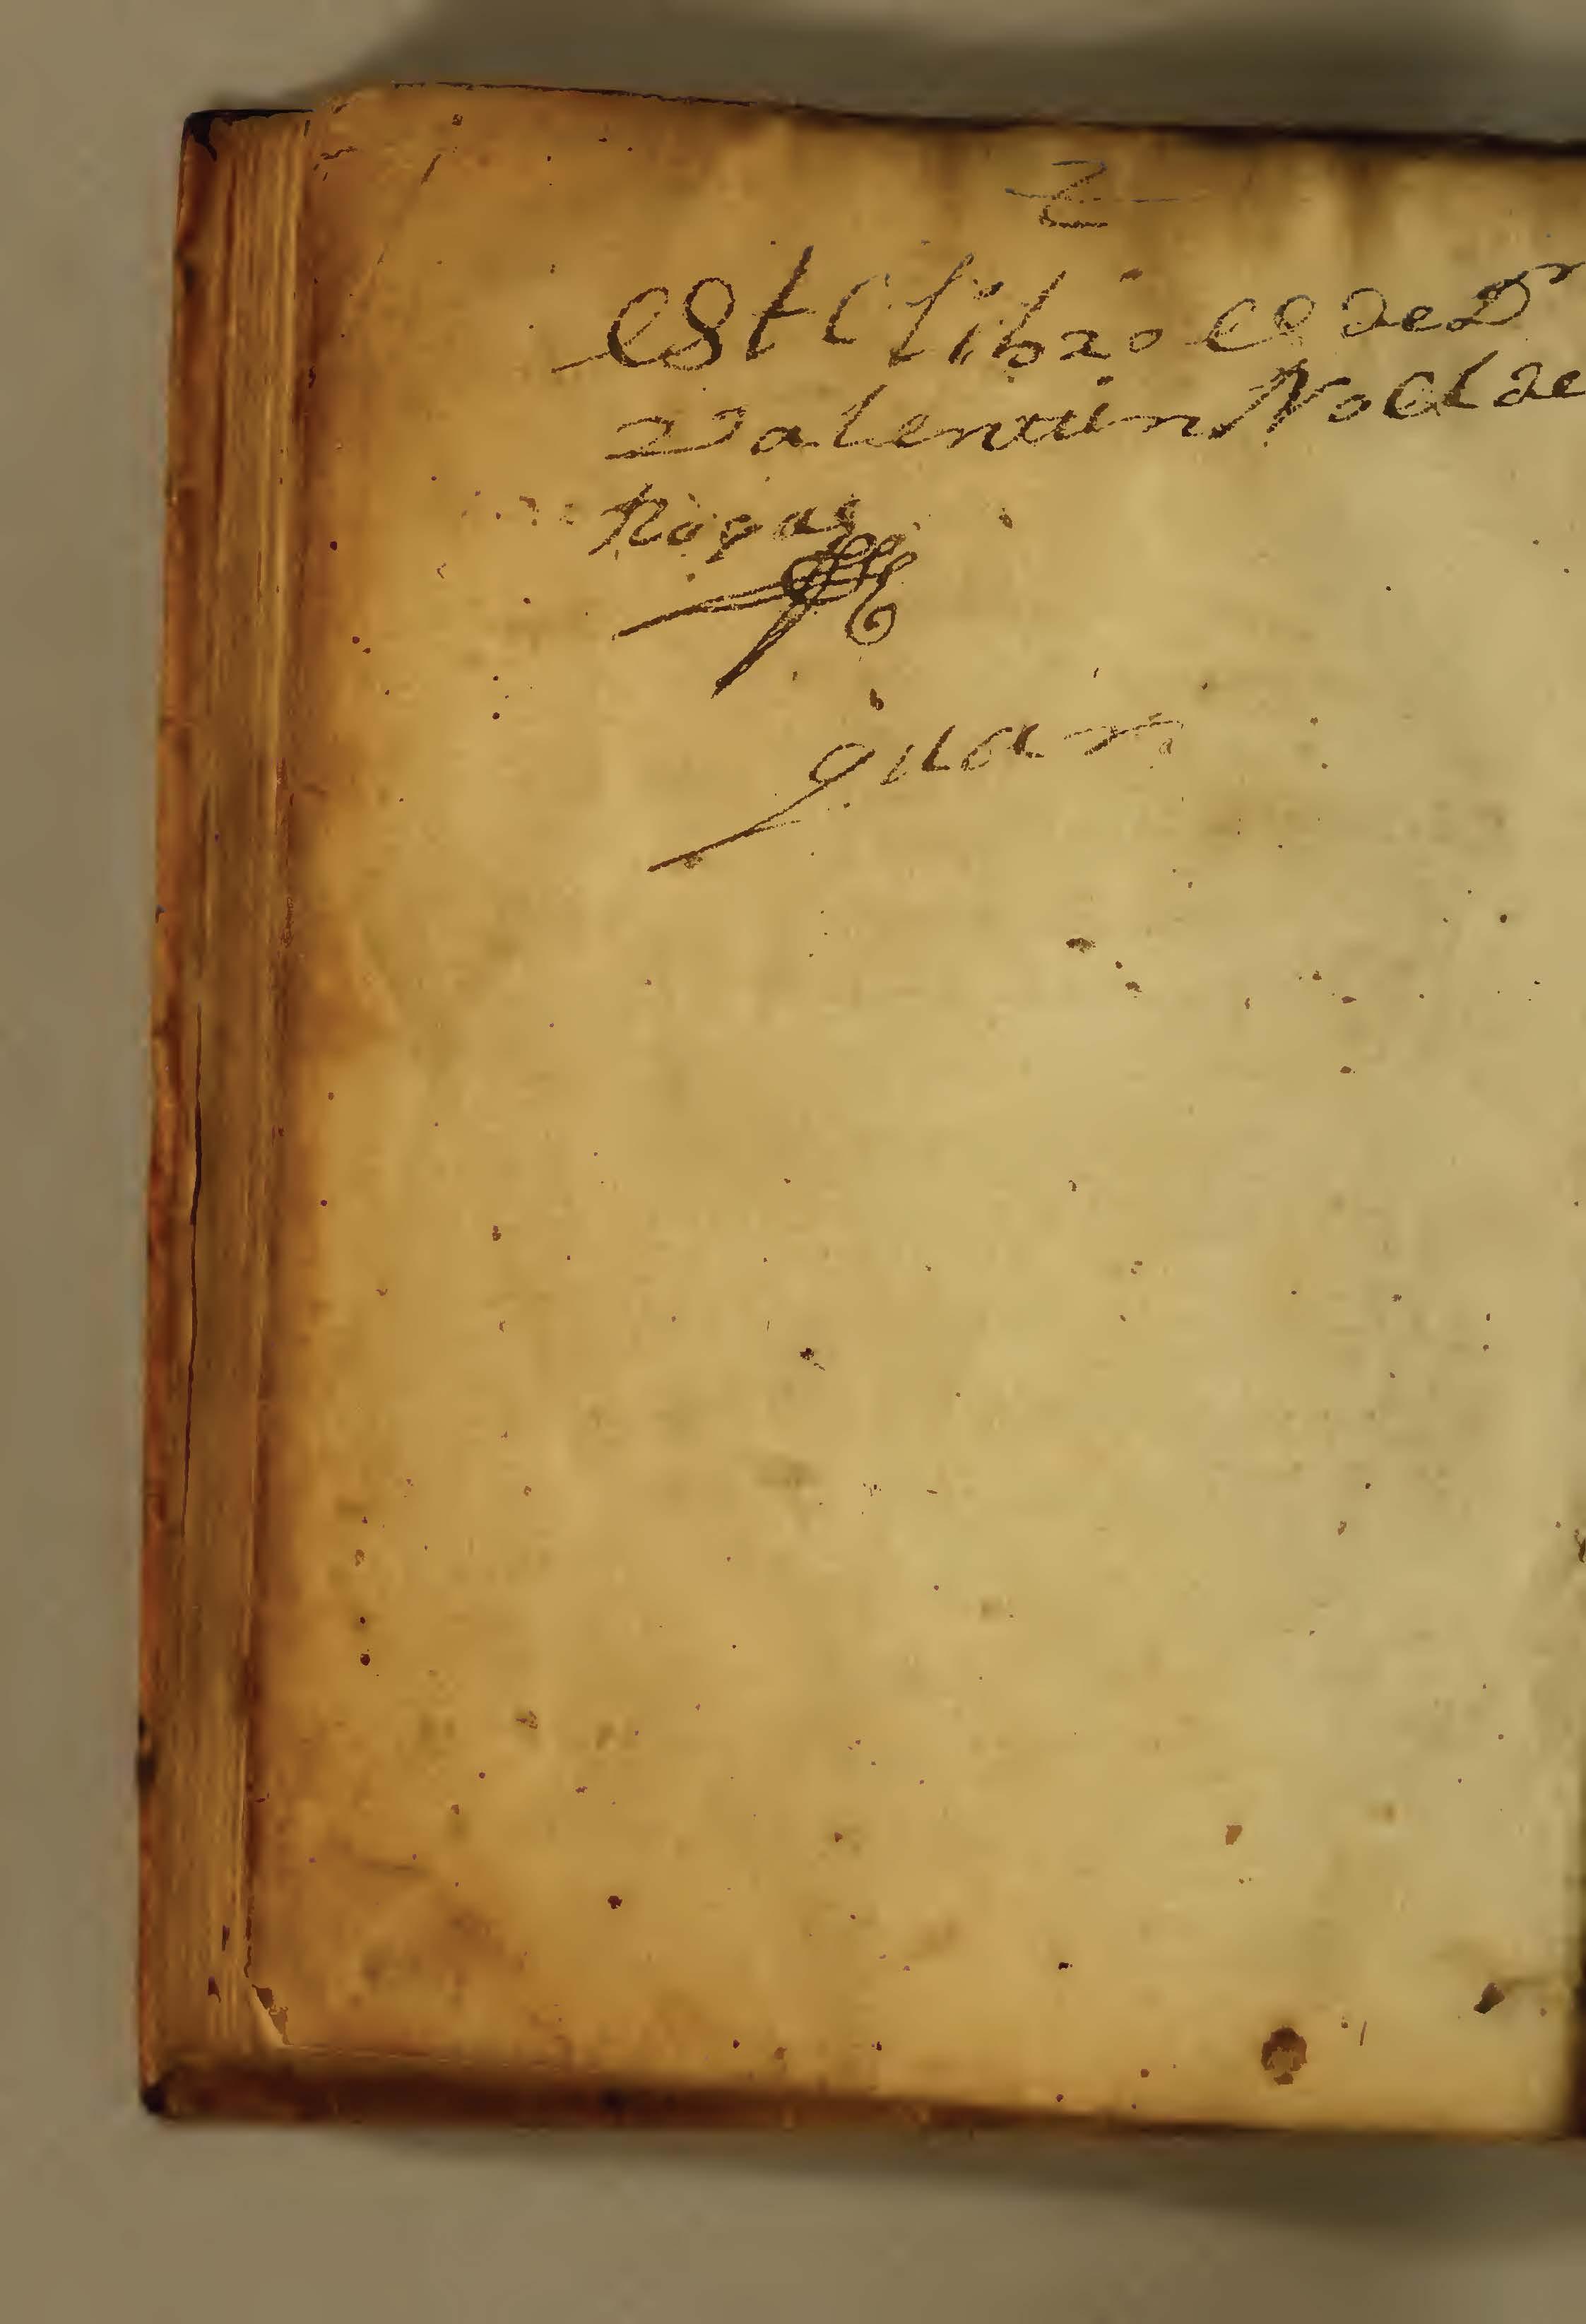 este libro es de Dn
Valentin Noel de
Rojas
juan